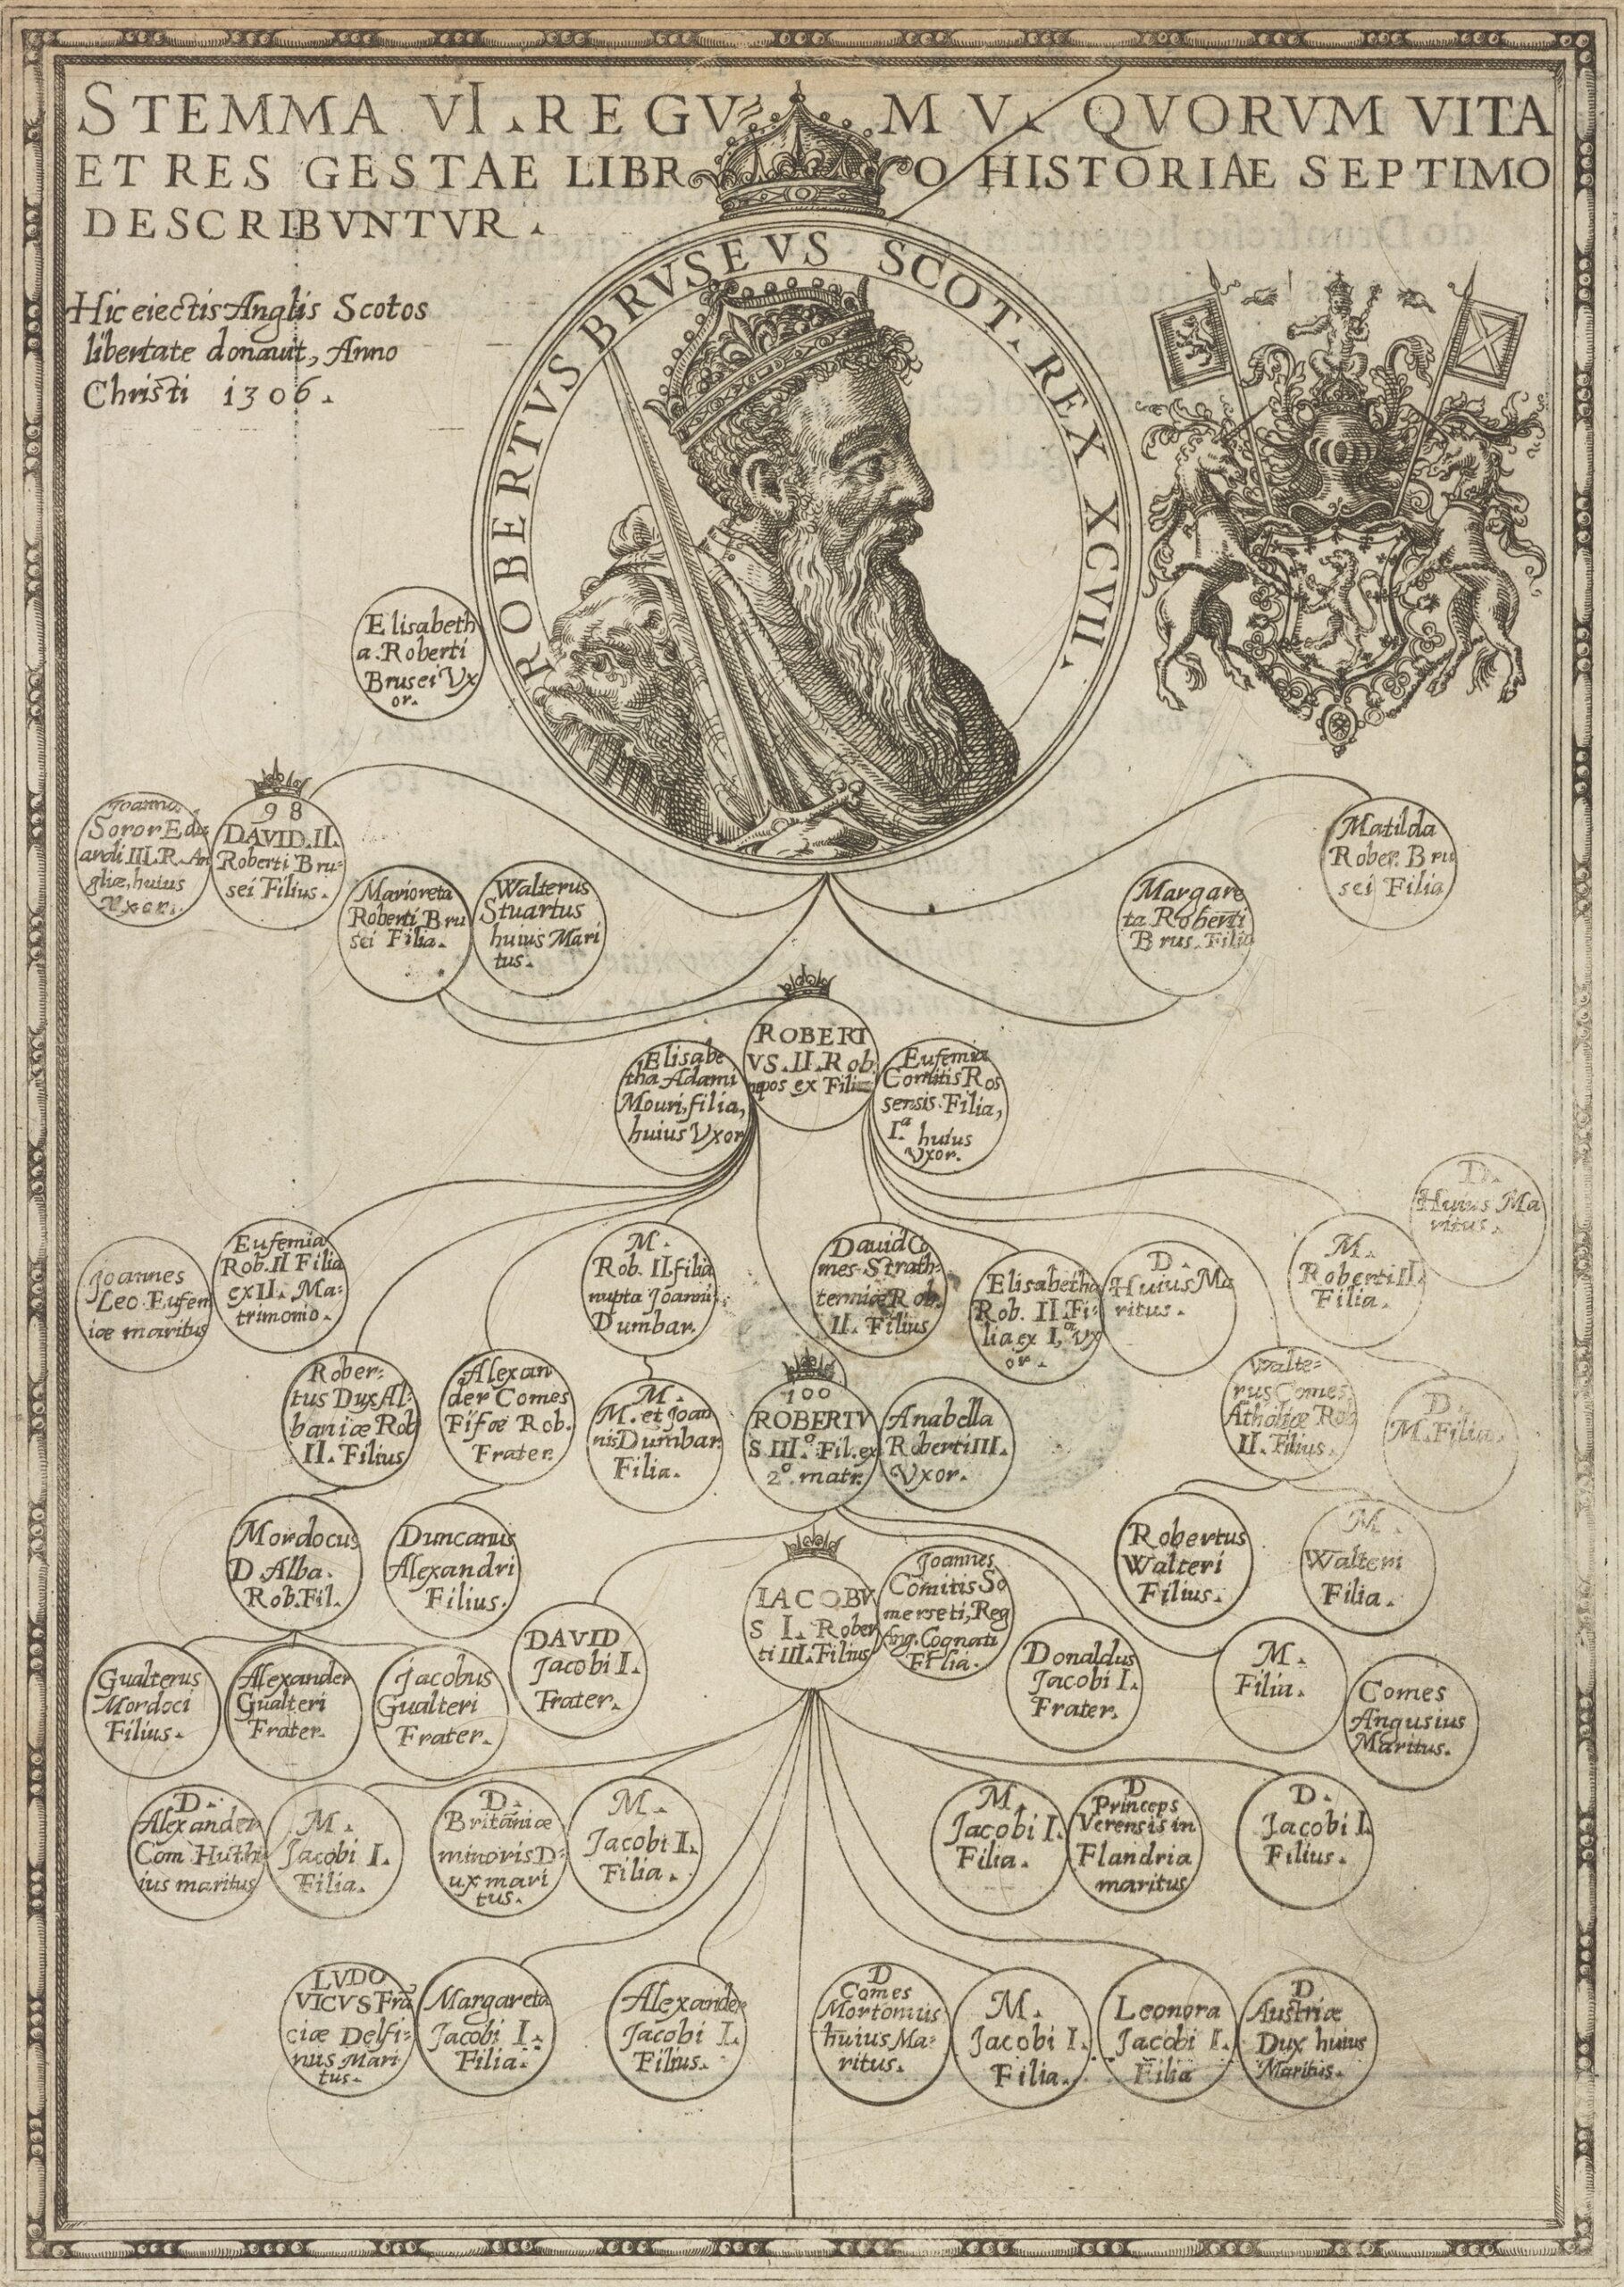 STEMMA VI. REGVM V. QVORVM VITA
ET RES GESTAE LIBRO HISTORIAE SEPTIMO
DESCRIBVNTVR.
Hic eiectis Anglis Scotos
libertate donauit, Anno
Christi 1306.
ROBERTVS BRVSEVS SCOT. REX XCVII.
Elisabeth
a Roberti
Brusei Vx
or.
Joanna
Soror Edu
ardi III. R. An
gliæ, huius
Vxor.
98
DAVID. II.
Roberti Bru-
sei Filius.
Marioreta
Roberti Bru
sei Filia.
Walterus
Stuartus
huius Mari
tus.
Margare
ta Roberti
Brus. Filia
Matilda
Rober. Bru
sei Filia
ROBERT
VS. II. Rob.
nepos ex Filia
Elisabe
tha Adami
Mouri, filia,
huius Vxor
Eufemia
Comitis Ros
sensis. Filia,
I.ª huius
Vxor.
D.
Huius Ma
ritus.
Joannes
Leo. Eufem
iæ maritus
Eufemia
Rob. II Filia
ex II. Ma-
trimonio.
M.
Rob. II. filia
nupta Joanni
Dumbar.
Dauid Co
mes Strath-
terniæ Rob.
II. Filius
Elisabetha
Rob. II. Fi-
lia ex I.ª Vx
or.
D.
Huius Ma
ritus.
M.
Roberti II.
Filia.
Rober-
tus Dux Al-
baniæ Rob
II. Filius
Alexan
der Comes
Fifæ Rob.
Frater.
M.
M. et Joan
nis Dumbar.
Filia.
100
ROBERTV
S. III.º Fil. ex
2.º matr.
Anabella
Roberti III.
Vxor.
Walte-
rus Comes
Atholiæ Rob
II. Filius.
D.
M. Filia.
Mordocus
D. Alba.
Rob. Fil.
Duncanus
Alexandri
Filius.
IACOBV
S I. Rober
ti III. Filius
Joannes
Comitis So
merseti, Reg
Ang. Cognati
Filia.
Robertus
Walteri
Filius.
M.
Walteri
Filia.
Gualterus
Mordoci
Filius.
Alexander
Gualteri
Frater.
Jacobus
Gualteri
Frater.
DAVID
Jacobi I.
Frater.
Donaldus
Jacobi I.
Frater.
M.
Filia.
Comes
Angusius
Maritus.
D.
Alexander
Com Huthi
ius maritus
M.
Jacobi I.
Filia.
D.
Britāniæ
minoris D-
ux mari
tus.
M.
Jacobi I.
Filia.
M.
Jacobi I.
Filia.
D
Princeps
Verensis in
Flandria
maritus
D.
Jacobi I.
Filius.
LVDO
VICVS Frā
ciæ Delfi-
nus Mari
tus.
Margareta
Jacobi I.
Filia.
Alexander
Jacobi I.
Filius.
D
Comes
Mortonius
huius Ma-
ritus.
M.
Jacobi I.
Filia.
Leonora
Jacobi I.
Filia
D
Austriæ
Dux huius
Maritus.